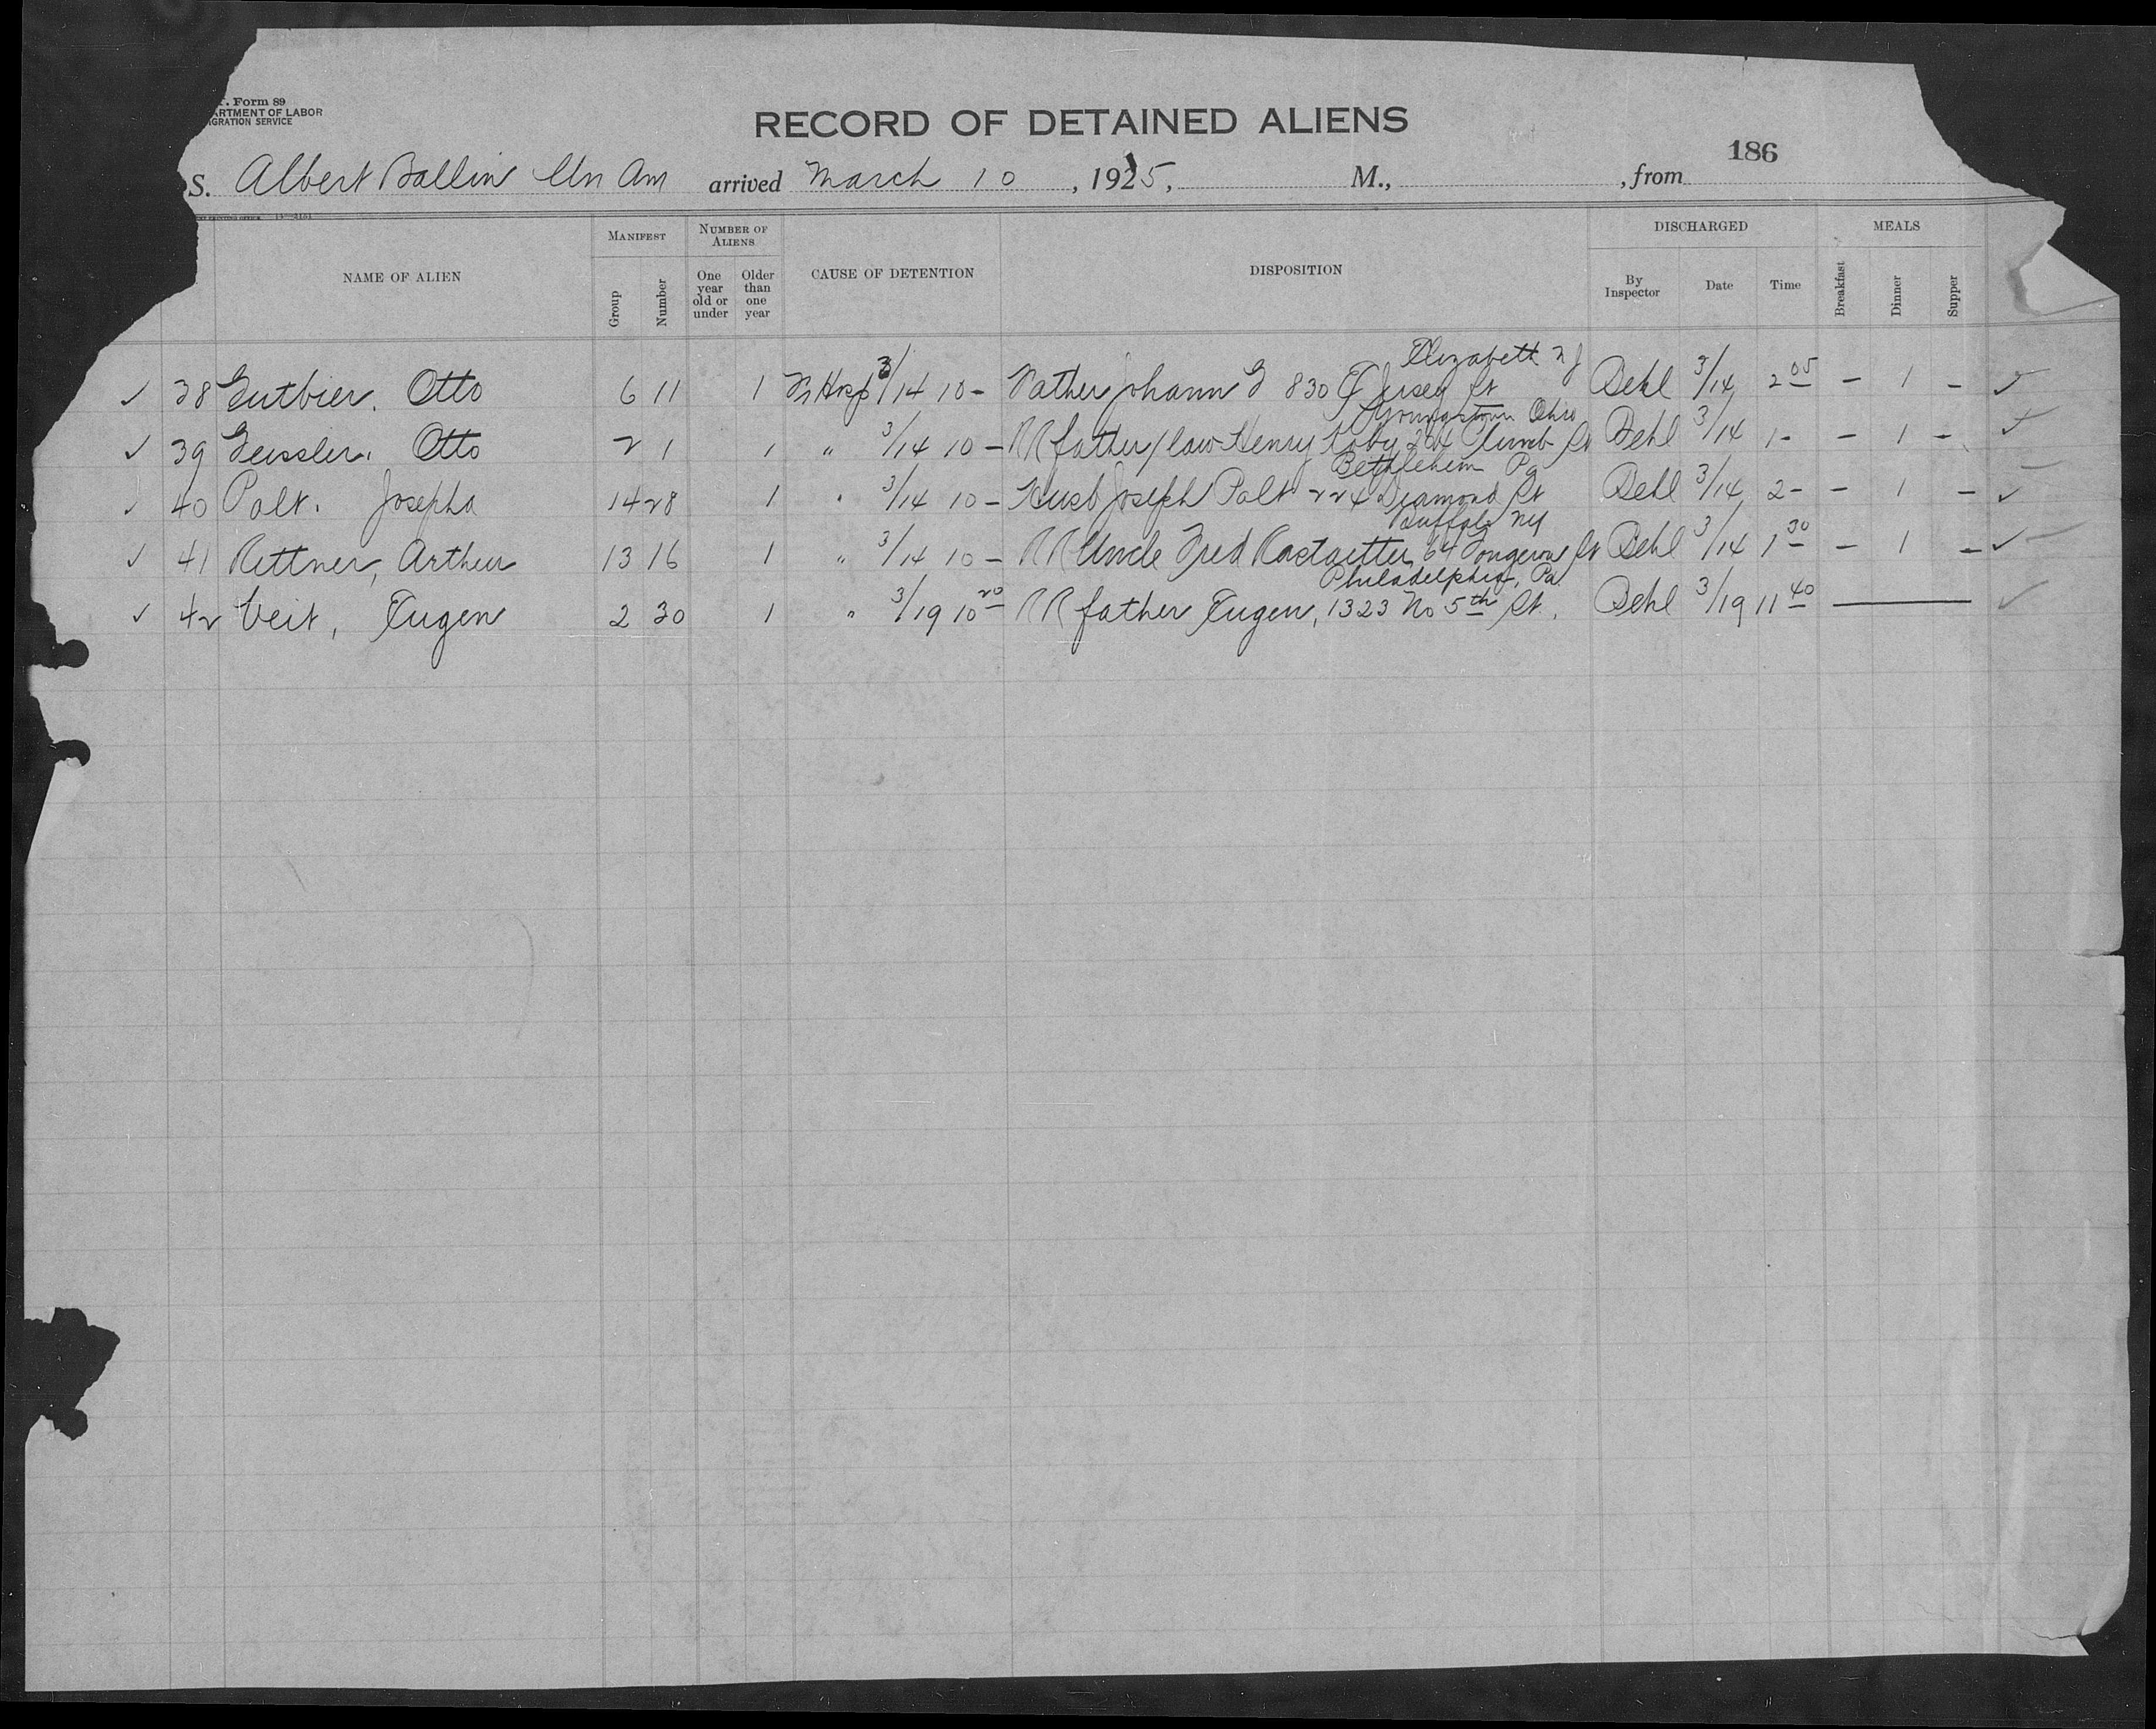 . Form 89
ARTMENT OF LABOR
IGRATION SERVICE
RECORD OF DETAINED ALIENS
186
S. Albert Ballin Un Am arrived March 10, 1925, M., , from
NAME OF ALIEN MANIFEST Group Number NUMBER OF ALIENS One year old or under Older than one year CAUSE OF DETENTION DISPOSITION DISCHARGED By Inspector Date Time MEALS Breakfast Dinner Supper
Elizabeth NJ
✓ 38 Gutbier, Otto 6 11 1 Hosp 3/14 10 - Father Johann G 830 E Jersey St Dehl 3/14 2 05 - 1 - ✓
Youngstown Ohio
✓ 39 Geissler, Otto 2 1 1 " 3/14 10 - RR father/law Henry 204 St Dehl 3/14 1 - - 1 - ✓
Bethlehem Pa
✓ 40 Palt, Josepha 14 28 1 " 3/14 10 - Husb Joseph Palt 224 Diamond St Dehl 3/14 2 - - 1 - ✓
Buffalo NY
✓ 41 Rittner, Arthur 13 16 1 " 3/14 10 - RR Uncle Fred Rastaetter 64 St Dehl 3/14 1 30 - 1 - ✓
Philadelphia, Pa
✓ 42 Veit, Eugen 2 30 1 " 3/19 10 20 RR father Eugen, 1323 No 5th St. Dehl 3/19 11 40 ✓